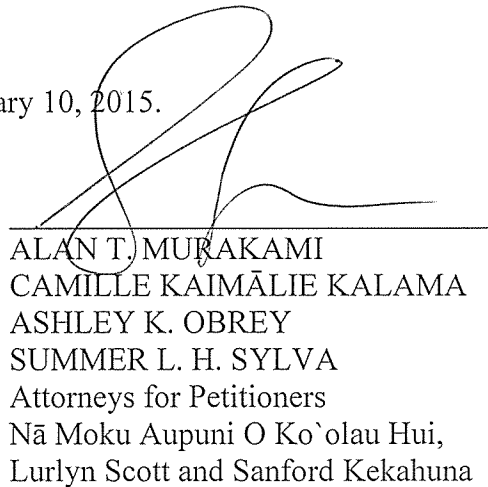 ary 10, 2015.
ALAN T. MURAKAMI
CAMILLE KAIMĀLIE KALAMA
ASHLEY K. OBREY
SUMMER L. H. SYLVA
Attorneys for Petitioners
Nā Moku Aupuni O Ko`olau Hui,
Lurlyn Scott and Sanford Kekahuna